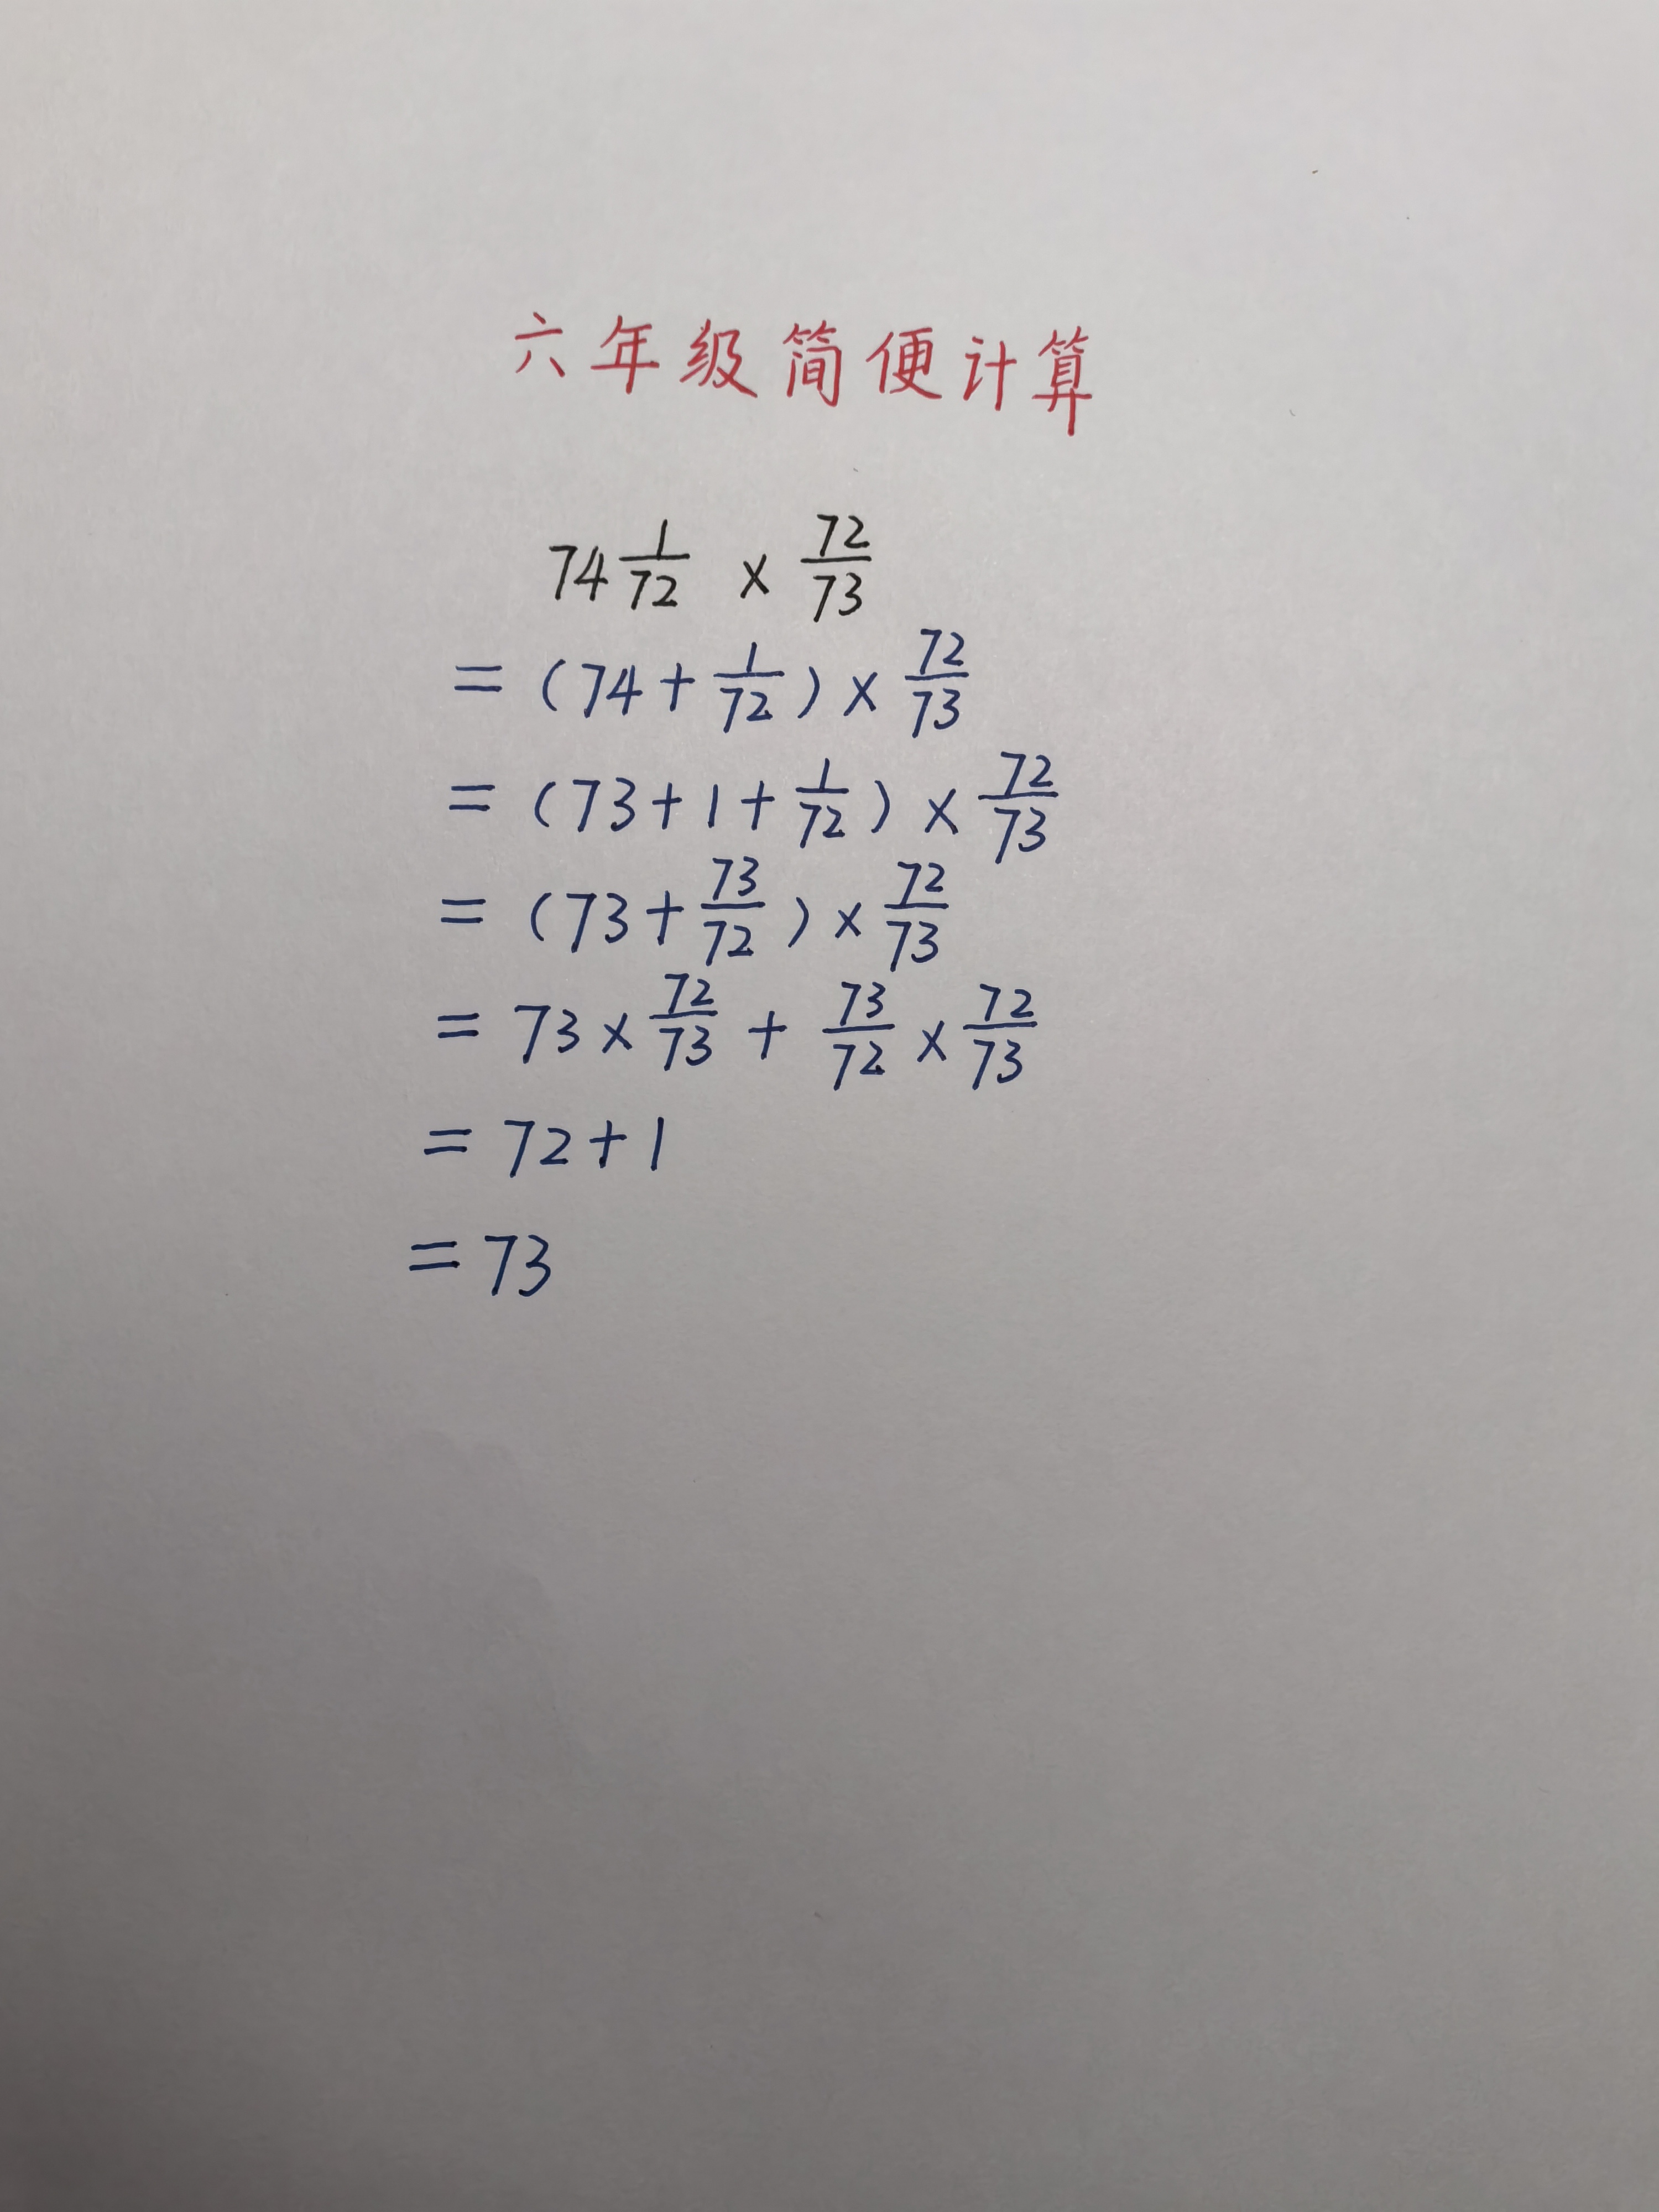 六年级简便计算
74 1/72 × 72/73
= (74 + 1/72) × 72/73
= (73 + 1 + 1/72) × 72/73
= (73 + 73/72) × 72/73
= 73 × 72/73 + 73/72 × 72/73
= 72 + 1
= 73